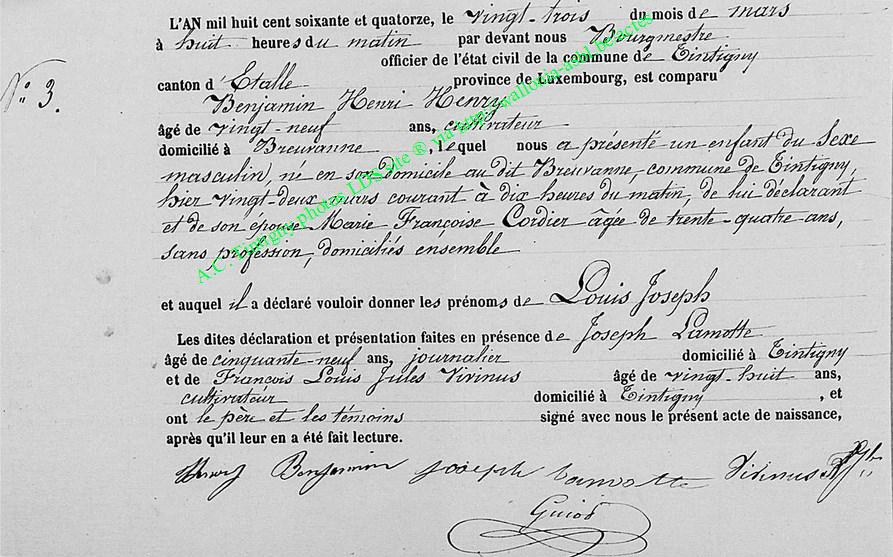 L'AN mil huit cent soixante et quatorze, le vingt-trois du mois de mars
à huit heures du matin par devant nous Bourgmestre
officier de l'état civil de la commune de Tintigny
N° 3.
canton d'Etalle province de Luxembourg, est comparu
Benjamin Henri Henry
âgé de vingt-neuf ans, cultivateur
domicilié à Breuvanne, lequel nous a présenté un enfant du Sexe
masculin, né en son domicile au dit Breuvanne, commune de Tintigny,
hier vingt-deux mars courant à dix heures du matin, de lui déclarant
et de son épouse Marie Françoise Cordier âgée de trente-quatre ans,
sans profession, domiciliés ensemble
et auquel il a déclaré vouloir donner les prénoms de Louis Joseph
Les dites déclaration et présentation faites en présence de Joseph Lamotte
âgé de cinquante-neuf ans, journalier domicilié à Tintigny
et de François Louis Jules Virinus âgé de vingt huit ans,
cultivateur domicilié à Tintigny, et
ont le père et les témoins signé avec nous le présent acte de naissance,
après qu'il leur en a été fait lecture.
Henry Benjamin Joseph Lamotte Virinus
Guiot
A.C. Tintigny photos LDS site ® via http:/wallonia-asbl.be/actes